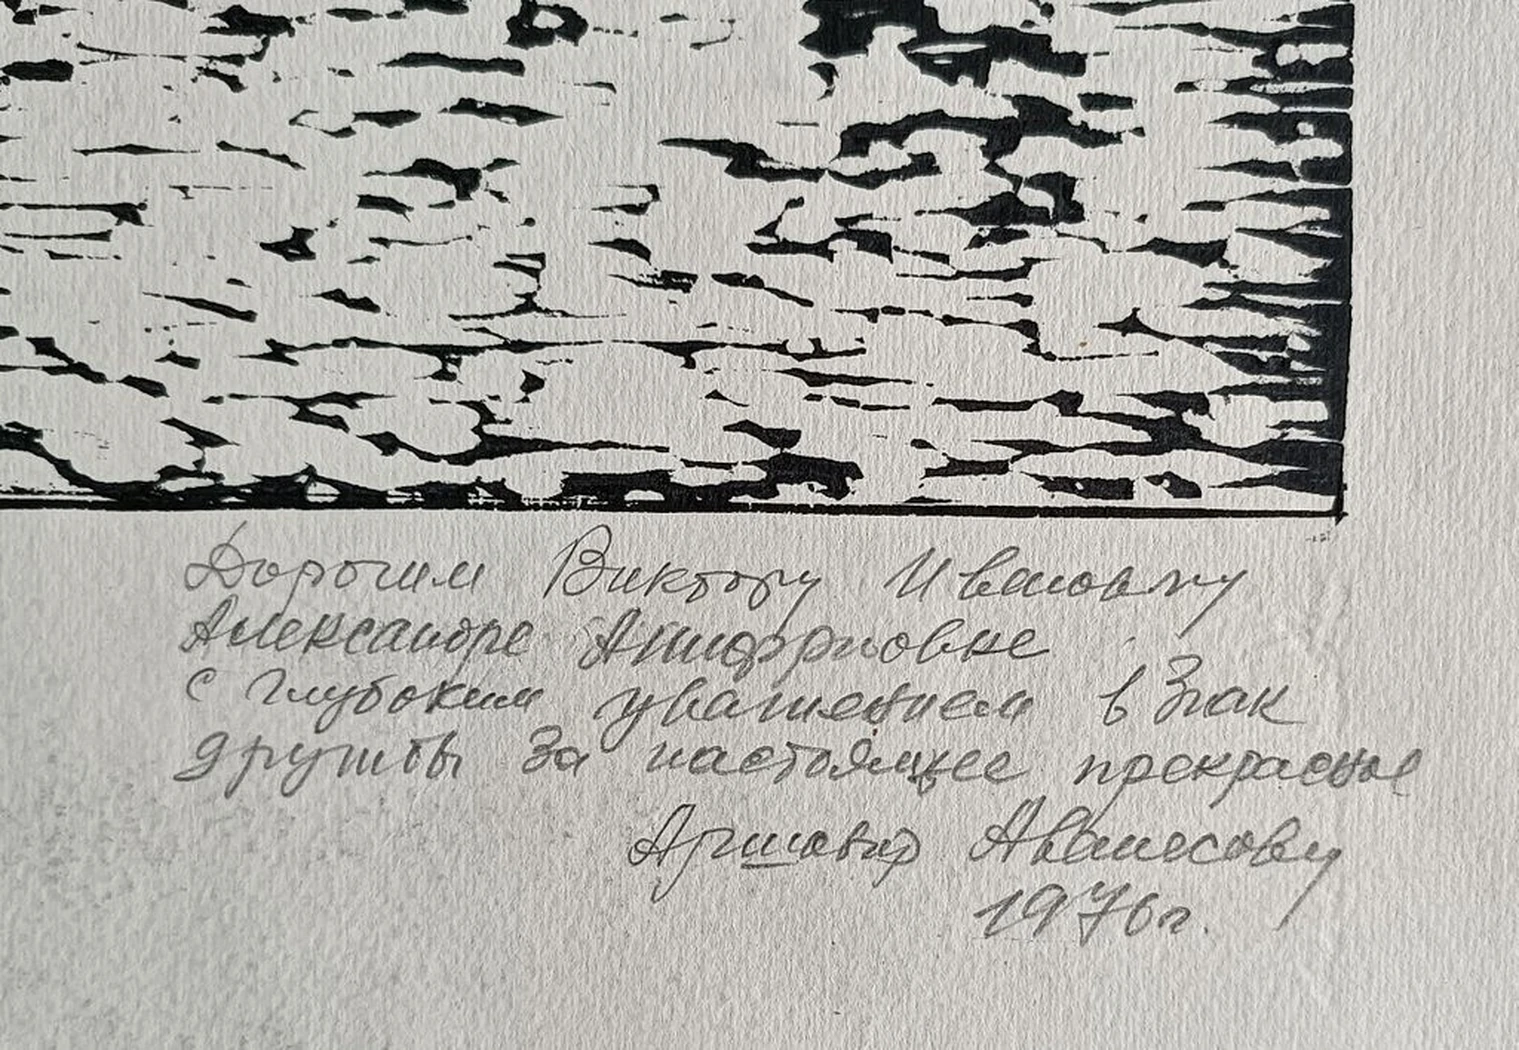 Дорогим Виктору Ивановичу
Александре Андреевне
с глубоким уважением в знак
дружбы за настоящее прекрасное
Аршавир Аванесову
1976г.